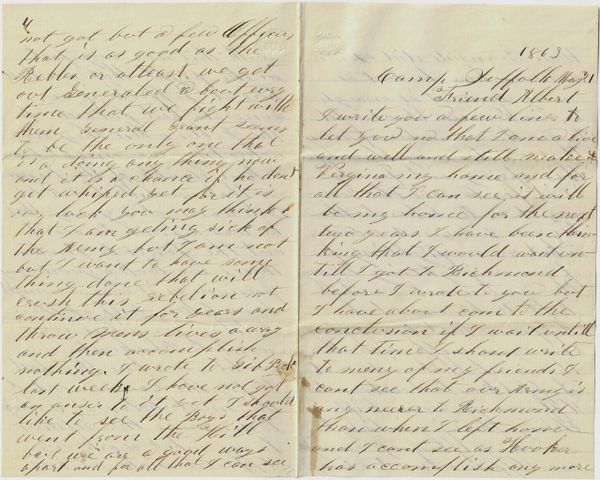 1863
Camp Suffolk May 21
Friend Albert
I write you a few lines to
let you no that I am a live
and well and still make
Verginia my home and for
all that I can see it will
be my home for the next
two years I have been thin
king that I would wait un
till I got to Richmond
before I wrote to you but
I have about com to the
conclusion if I wait untill
that time I shant write
to meny of my friends I
cant see that our Army is
any neerer to Richmond
than when I left home
and I cant see as Hooker
has accomplish any more
4
not got but a few Officers
that is as good as the
Rebles or atleast we get
out Generaled a bout evry
time that we fight with
them General Grant seems
to be the only one that
is a doing any thing now
and it is a chance if he dont
get whiped yet for it is
our luck you may think
that I am geting sick of
the Army but I am not
but I want to have some
thing done that will
crush this rebelion not
continue it for years and
throw mens lives a way
and then accomplish
nothing. I wrote to Gib
last week I have not got
an anser to it yet I should
like to see the Boys that
went from the Hill
but we are a good ways
apart and for all that I can see